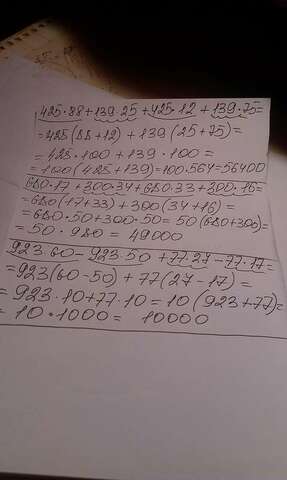 425·88+139·25+425·12+139·75=
=425(88+12)+139(25+75)=
=425·100+139·100=
=100(425+139)=100·564=56400
680·17+300·34+680·33+300·16=
=680(17+33)+300(34+16)=
=680·50+300·50=50(680+300)=
=50·980=49000
923·60-923·50+77·27-77·17=
=923(60-50)+77(27-17)=
=923·10+77·10=10(923+77)=
=10·1000=10000